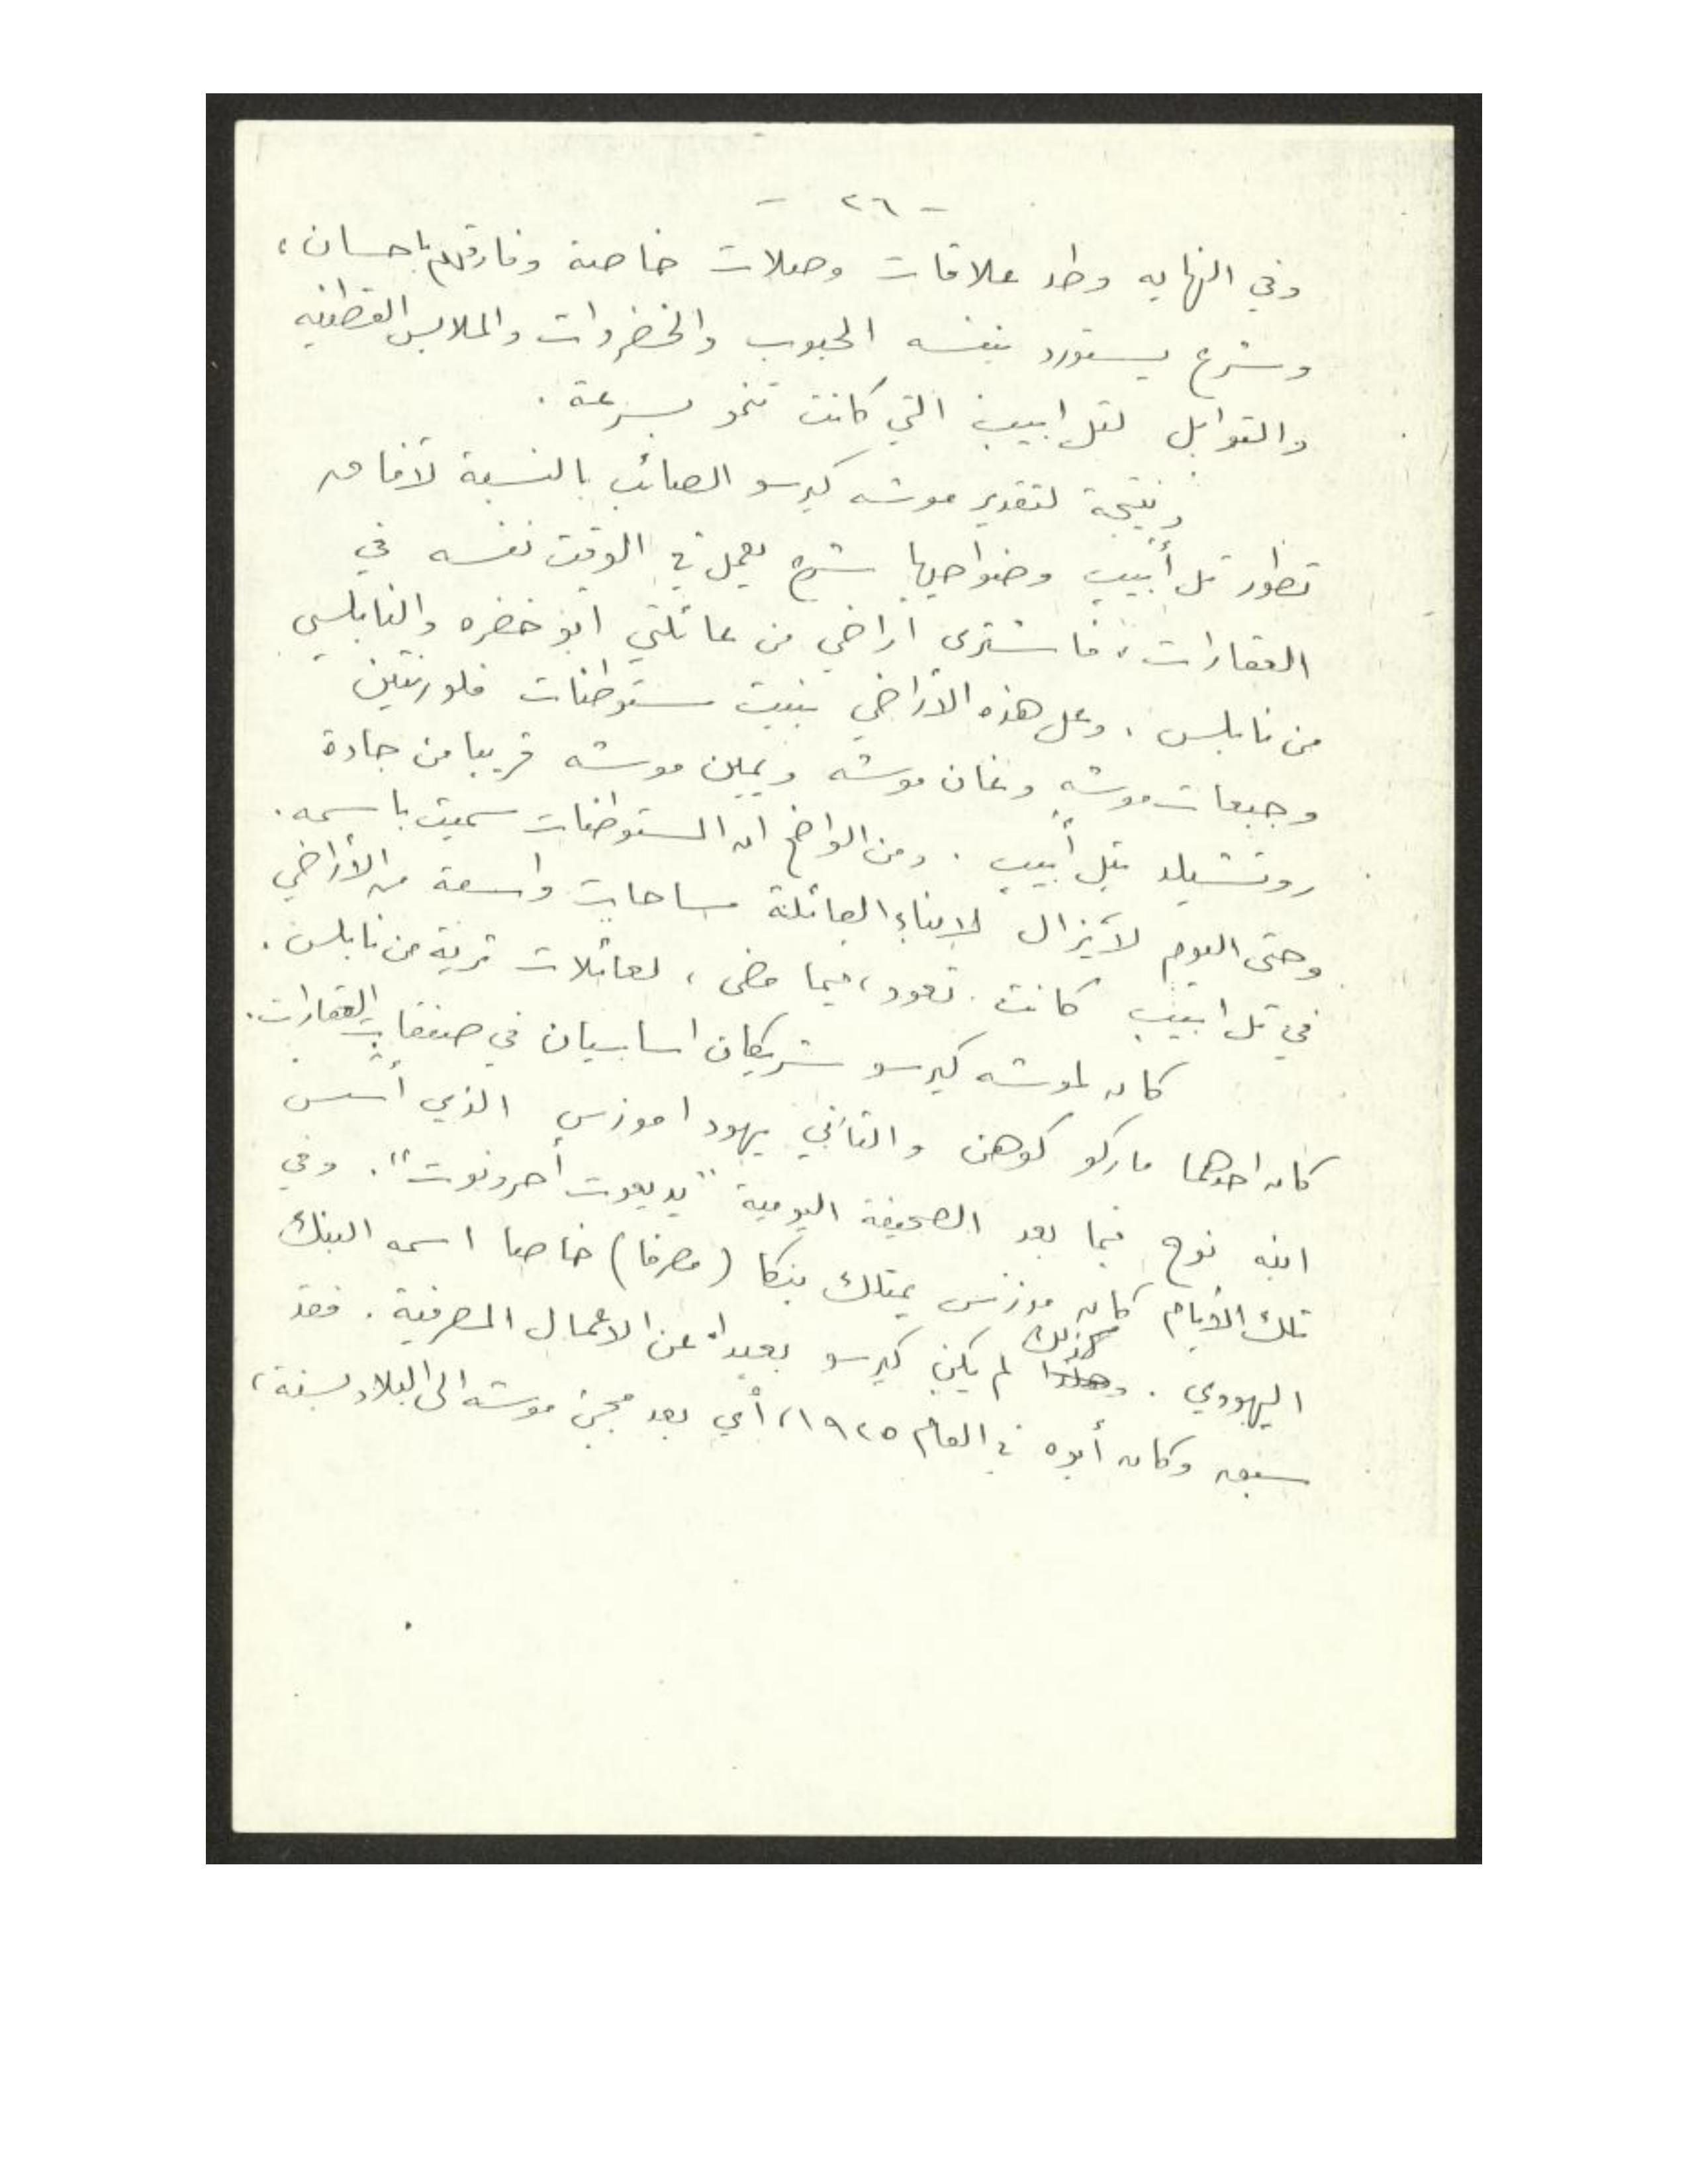 - ٢٦ -
وفي النهايه وطد علاقات وصلات خاصة وفارقهم باحسان،
وشرع يستورد بنفسه الحبوب والخضروات والملابس القطنيه
والتوابل لتل ابيب التي كانت تنمو بسرعة.
ونتيجة لتقدير موشه كرسو الصائب بالنسبة لآفاق
تطور تل أبيب وضواحيها شرع يعمل في الوقت نفسه في
العقارات، فاشترى اراضي من عائلتي ابو خضره والنابلسي
من نابلس. وعلى هذه الأراضي بنيت مستوطنات فلورنتين
وجبعات موشه وغان موشه ويمين موشه قريبا من جادة
روتشيلد بتل أبيب. ومن الواضح ان المستوطنات سميت باسمه.
وحتى اليوم لا يزال لابناء العائلة مساحات واسعة من الأراضي
في تل ابيب كانت تعود، فيما مضى، لعائلات ثرية من نابلس.
كان لموشه كرسو شريكان اساسيان في صفقات العقارات.
كان احدهما ماركو كوهن والثاني يهودا موزس الذي أسس
ابنه نوح فيما بعد الصحيفة اليومية "يديعوت أحرونوت". وفي
تلك الأيام كان موزس يمتلك بنكا (مصرفا) خاصا اسمه البنك
اليهودي. وهكذا كذلك لم يكن كرسو بعيدا عن الاعمال المصرفية. فقد
سبقه وكان أبوه في العام ١٩٢٥، أي بعد مجيئ موشه الى البلاد بسنة،